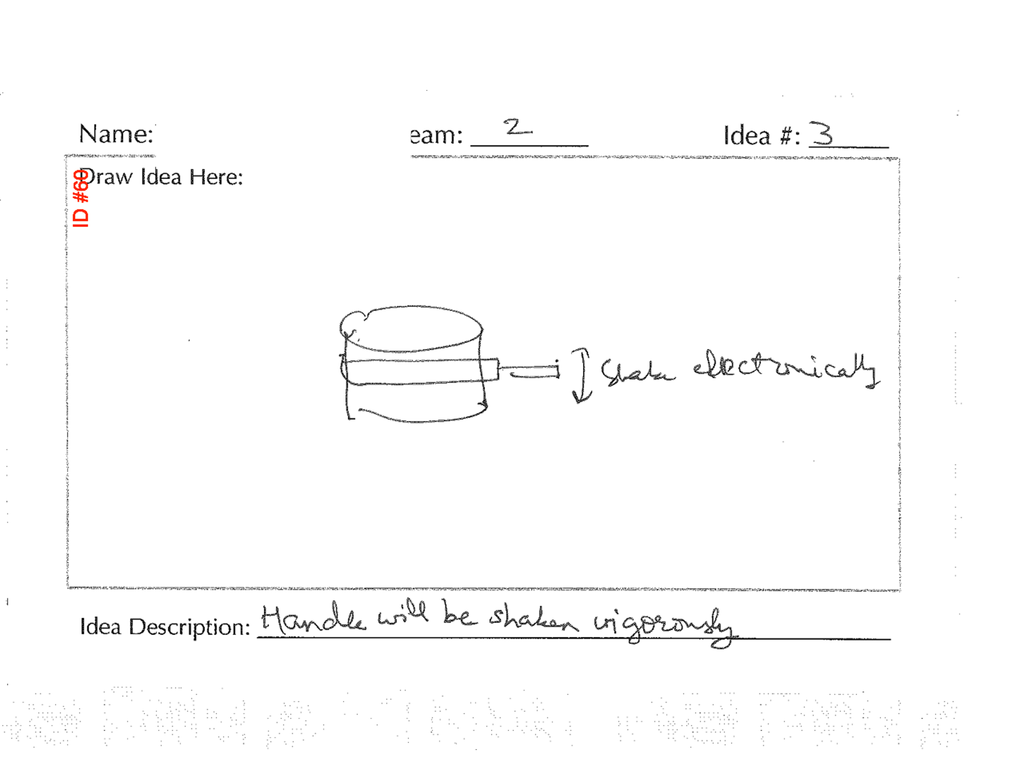 Name: eam: 2 Idea #: 3
Draw Idea Here:
ID #69
Shake electronically
Idea Description: Handle will be shaken vigorously